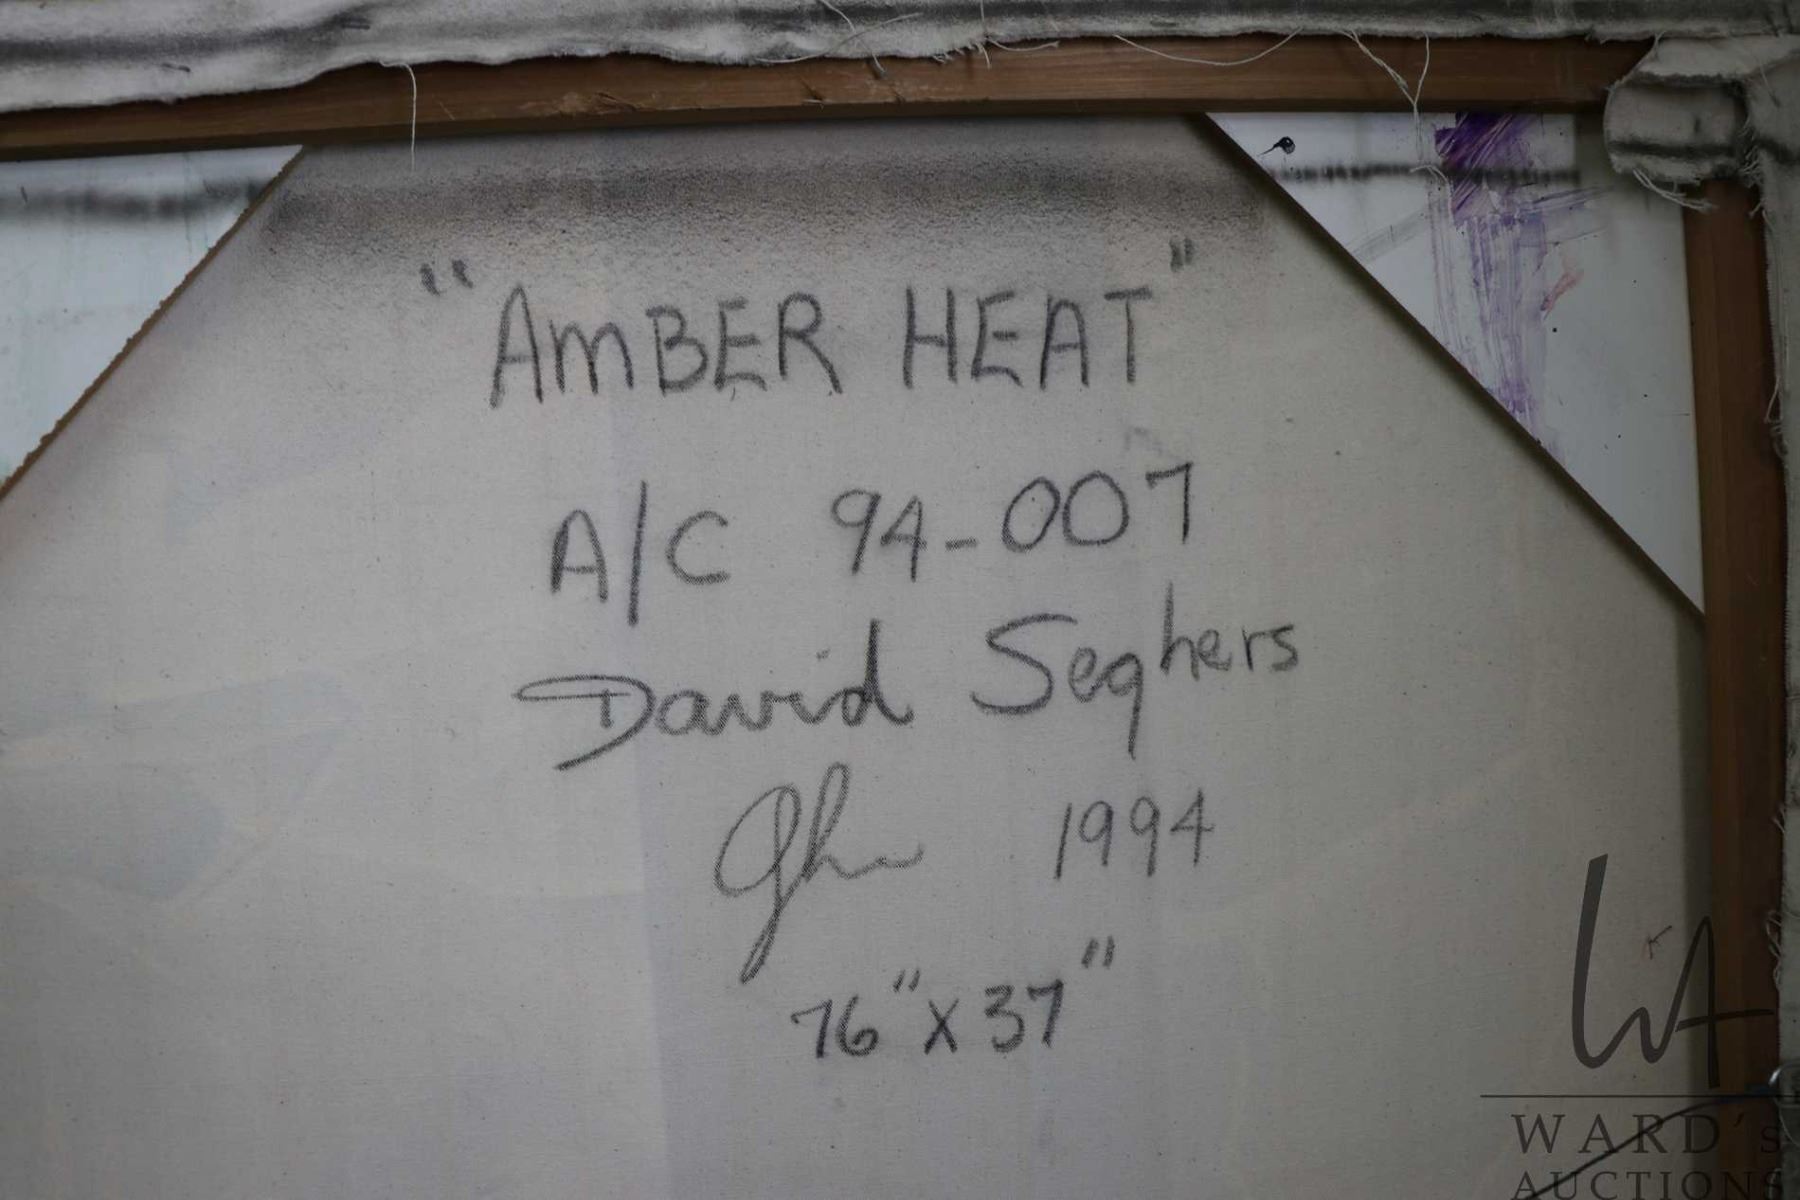 "AMBER HEAT"
A/C 94-007
David Seghers
1994
76" x 37"
WA
WARD's
AUCTIONS